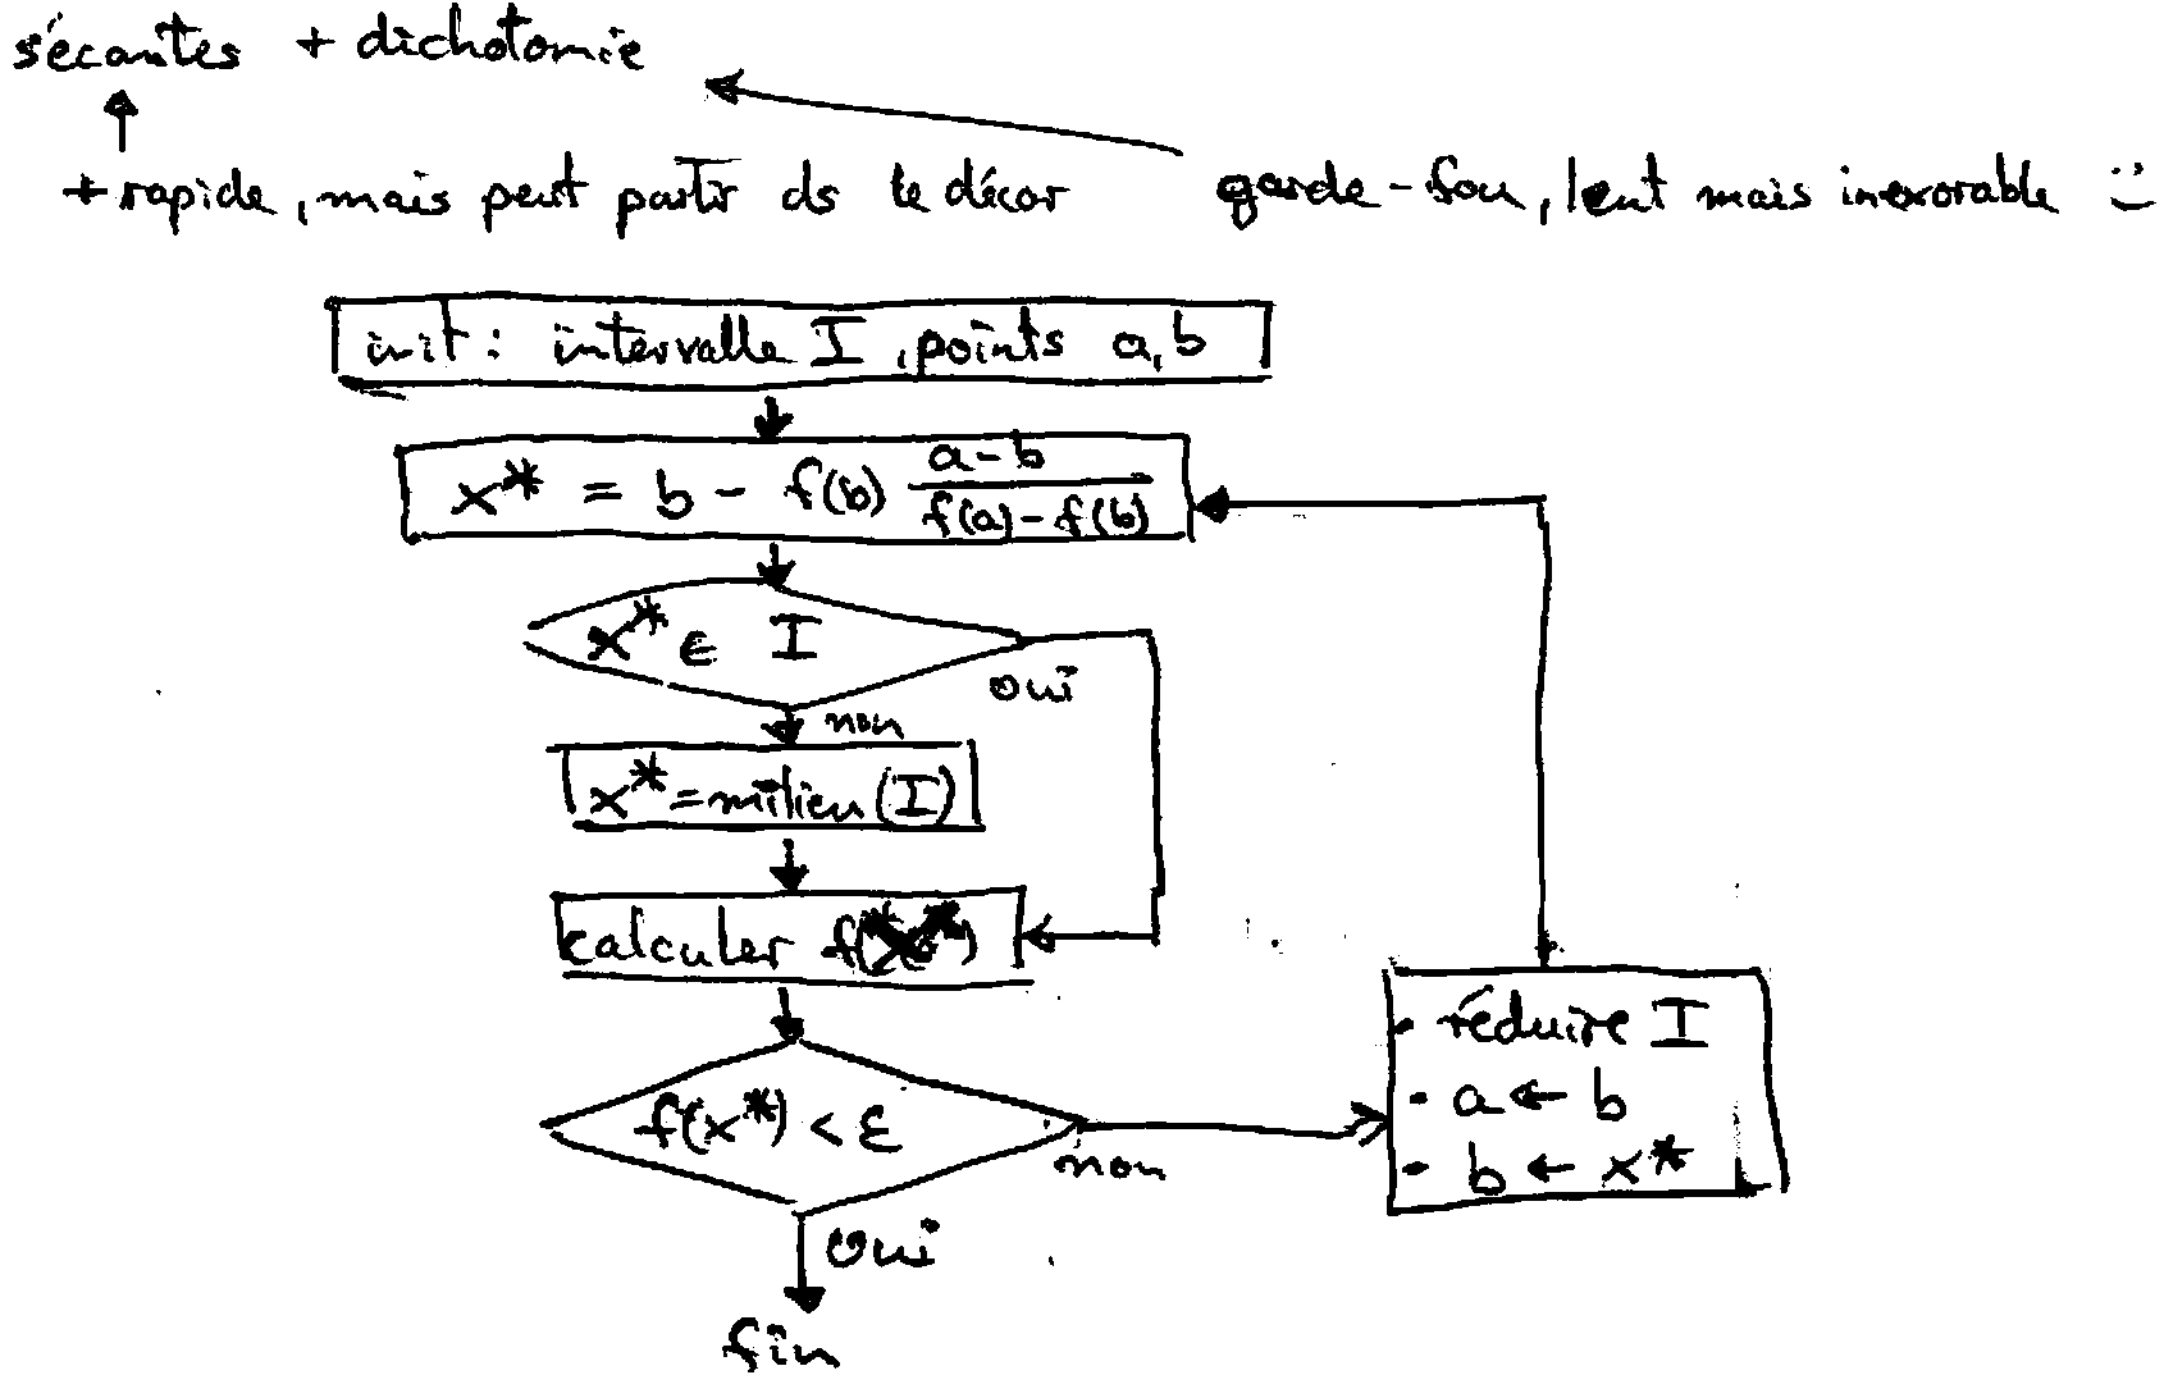 sécantes + dichotomie
+ rapide, mais peut partir ds le décor garde-fou, lent mais inexorable :)
init : intervalle I, points a, b
x* = b - f(b) (a-b)/(f(a)-f(b))
x* ∈ I
oui
non
x* = milieu (I)
calculer f(x*)
• réduire I
• a ← b
• b ← x*
f(x*) < ε
non
oui
fin